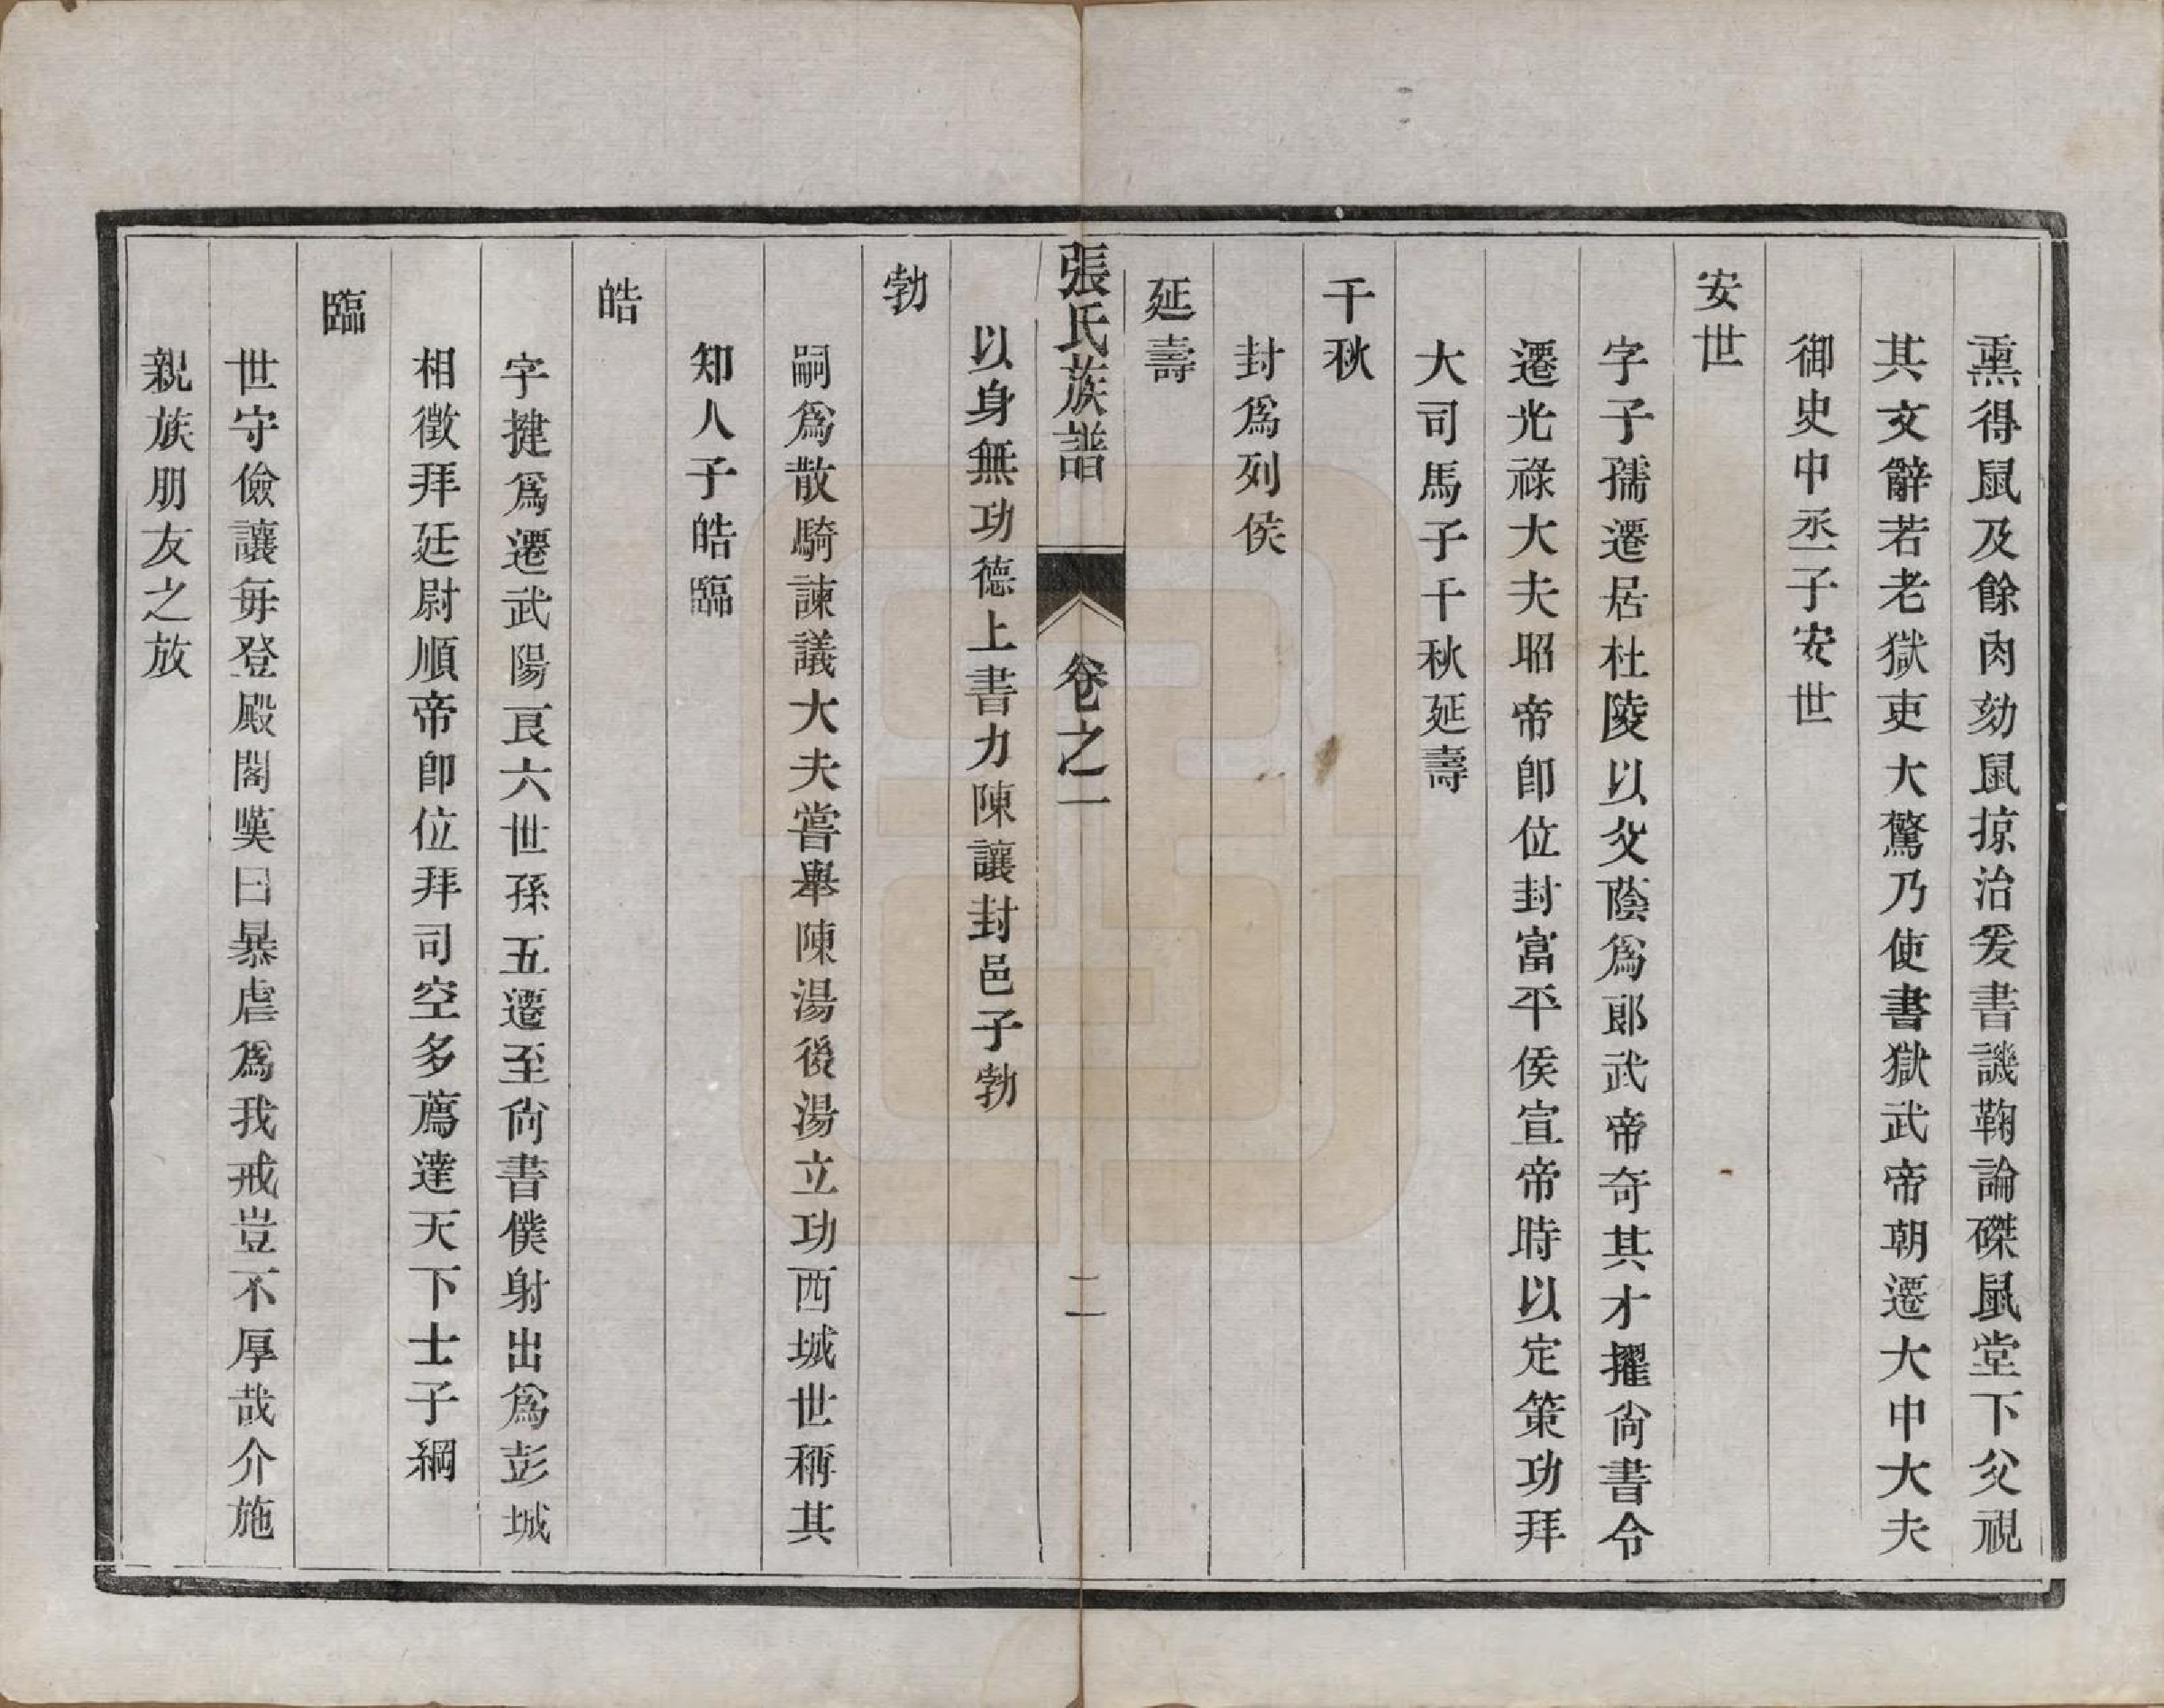 熏得鼠及餘肉劾鼠掠治爰書譏鞫論磔鼠堂下父視
其文辭若老獄吏大驚乃使書獄武帝朝遷大中大夫
御史中丞子安世
安世
字子孺遷居杜陵以父蔭爲郎武帝奇其才擢尙書令
遷光祿大夫昭帝卽位封富平侯宣帝時以定策功拜
大司馬子千秋延壽
千秋
封爲列侯
延壽
張氏族譜 卷之一 二
以身無功德上書力陳讓封邑子勃
勃
嗣爲散騎諫議大夫嘗舉陳湯後湯立功西域世稱其
知人子皓臨
皓
字揵爲遷武陽艮六世孫五遷至尙書僕射出爲彭城
相徵拜廷尉順帝卽位拜司空多薦達天下士子綱
臨
世守儉讓每登殿閣嘆曰暴虐爲我戒豈不厚哉介施
親族朋友之放